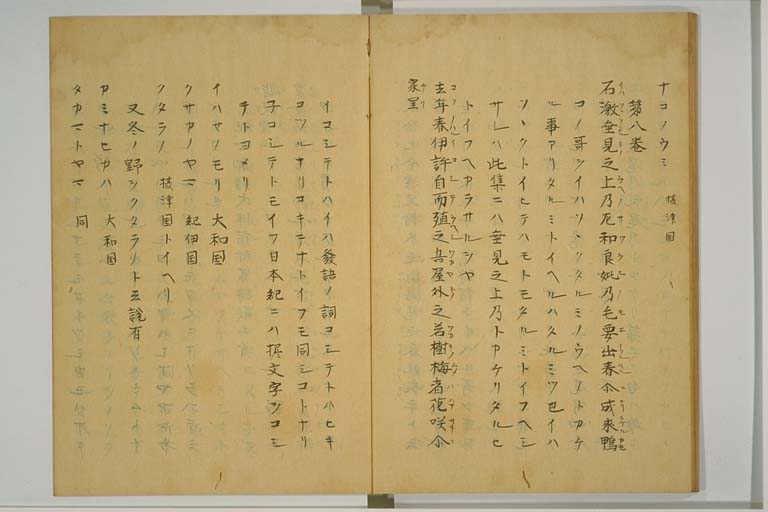 ナコノウミ 摂津国
第八巻
石激垂見之上乃左和良妣乃毛要出春尓成来鴨
コノ哥ヲイハソヽクタルミノウヘノトカケ
ル事アリタルミトイヘルハタルミツ也イハ
ソヽクトイヒテハモトモタルミトイフヘシ
サレハ此集ニハ垂見之上乃トカケリタルヒ
トイフヘカラサルシヤ
去年春伊許自而殖之吾屋外之若樹梅者花咲尓
家里
イコシテトハイハ發語ノ詞コシテトハヒキ
コツルナリコキテナトイフモ同シコトナリ
子コシテトモイフ日本紀ニハ掘文字ヲコシ
テトヨメリ
イハセノモリ 大和国
クサカノヤマ 紀伊国
クタラノ 摂津国トイヘリ
又冬ノ野ヲクタラノト云説有
カミナヒカハ 大和国
タカマトヤマ 同